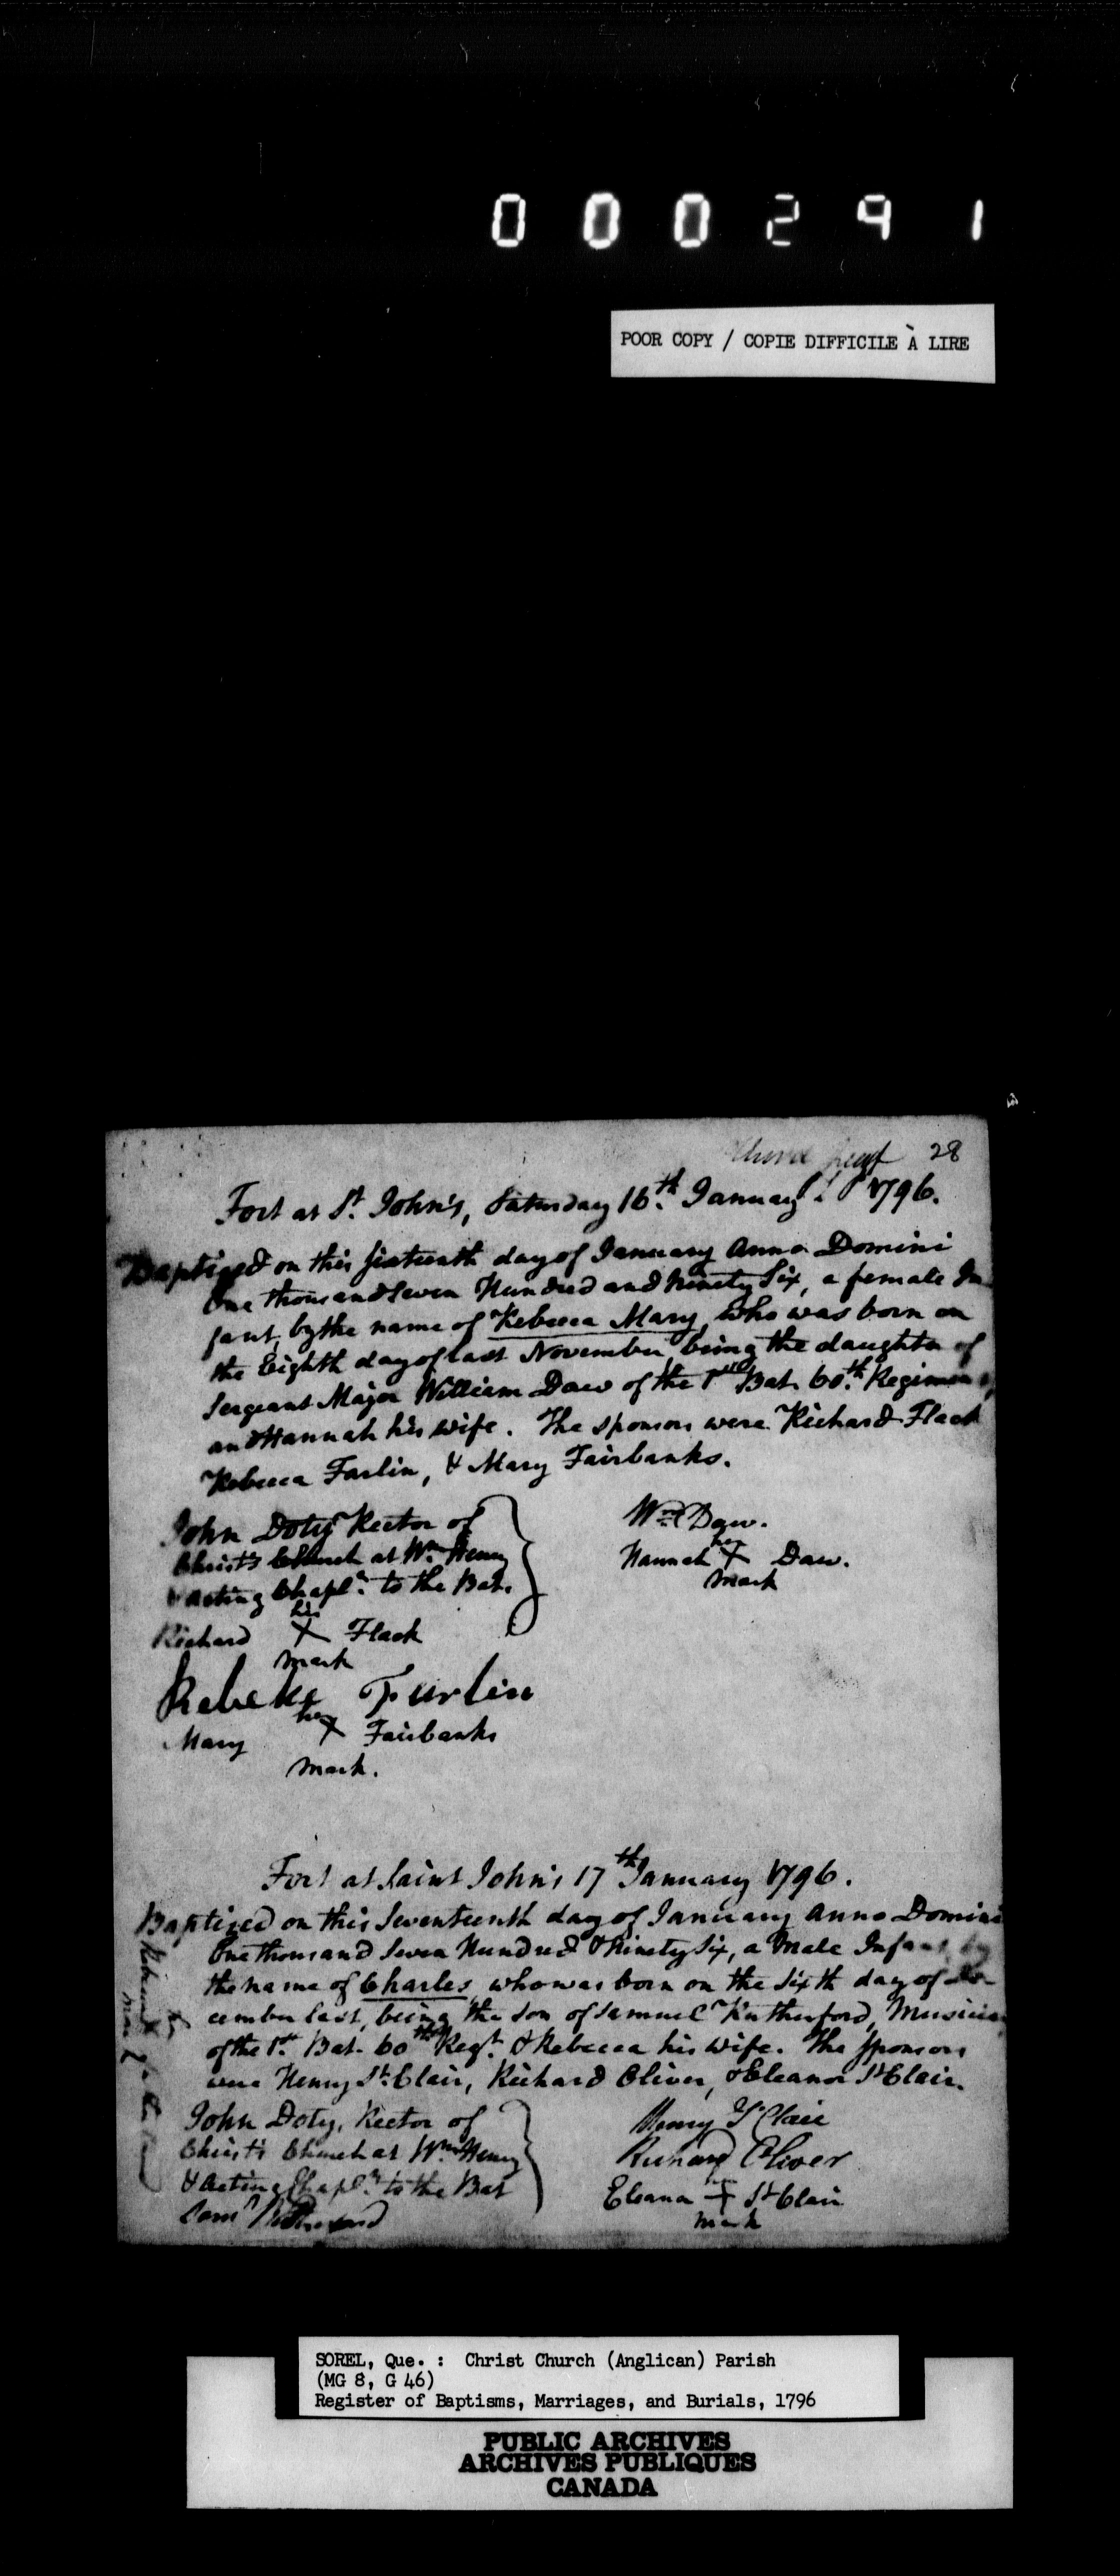 0 0 0 2 9 1
POOR COPY / COPIE DIFFICILE À LIRE
28
Fort at St. John's, Saturday 16th. January 1796.
Baptized on this sixteenth day of January Anno Domini
One thousand seven Hundred and ninety Six, a female In-
fant, by the name of Rebecca Mary, who was born on
the Eighth day of last November being the daughter of
Sergeant Major William Daw of the 1st Bat. 60th. Regiment,
and Hannah his wife. The sponsors were Richard Flack
Rebecca Farlin, & Mary Fairbanks.
John Doty Rector of
Christ's Church at Wm. Henry
& acting Chapln. to the Bat.
Wm. Daw.
Hannah her X Daw.
mark
Richard his X Flack
mark
Rebeke Furlin
Mary her X Fairbanks
mark.
Fort at Saint John's 17th January 1796.
Baptized on this Seventeenth day of January Anno Domini
One thousand Seven Hundred & Ninety Six, a Male Infant by
the name of Charles, who was born on the Sixth day of De-
cember last, being the Son of Samuel Rutherford, Musician
of the 1st. Bat. 60th Regt. & Rebecca his wife. The Sponsors
were Henry St. Clair, Richard Oliver, & Eleanor St Clair.
John Doty, Rector of
Christ's Church at Wm. Henry
& Acting Chapln. to the Bat
Saml Rutherford
Henry St Clair
Richard Oliver
Eleanor her + St Clair
mark
SOREL, Que. : Christ Church (Anglican) Parish
(MG 8, G 46)
Register of Baptisms, Marriages, and Burials, 1796
PUBLIC ARCHIVES
ARCHIVES PUBLIQUES
CANADA